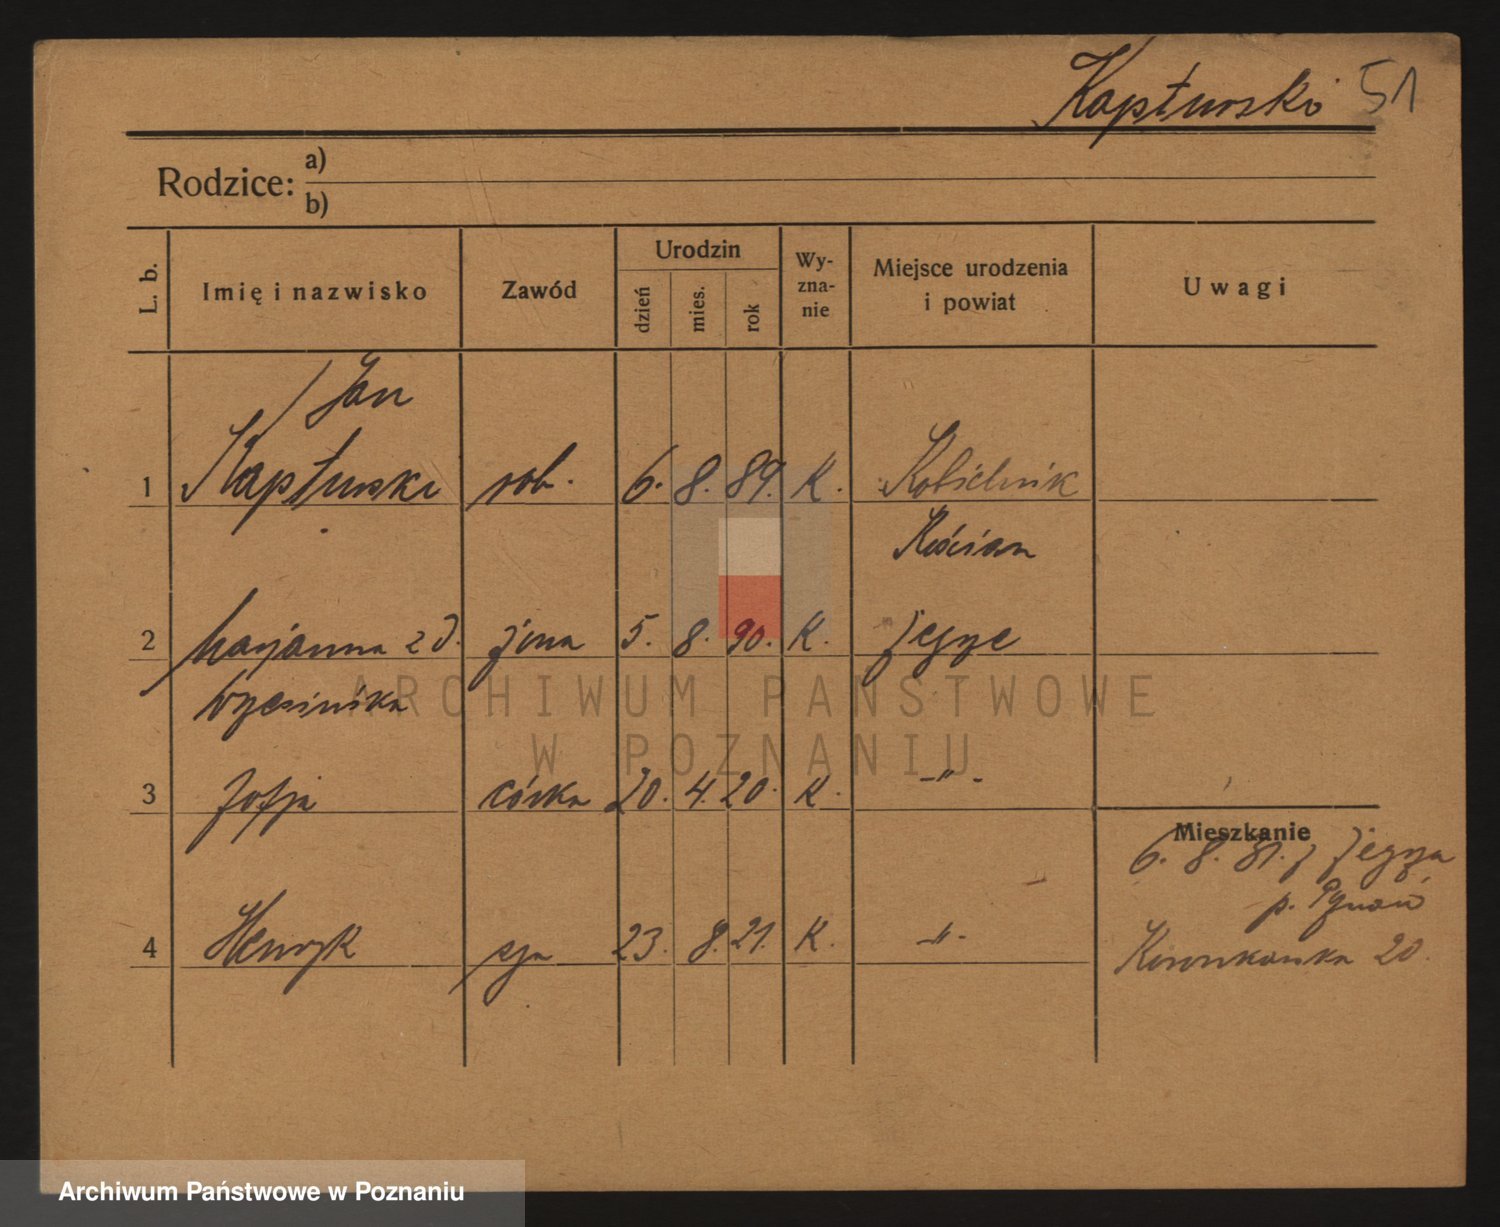 Kapturski 51
Rodzice: a)
b)
L. b.
Imię i nazwisko
Zawód
Urodzin
dzień
mies.
rok
Wy-
zna-
nie
Miejsce urodzenia
i powiat
Uwagi
/ Jan
1 Kapturski rob. 6. 8. 89. K.
Kościan
2 Marjanna z d. żona 5. 8. 90. K.
3 Zofja córka 20. 4. 20. K. -"-
Mieszkanie
6. 8. 31.
4 Henryk syn 23. 8. 21. K. -"-
20.
ARCHIWUM PAŃSTWOWE
W POZNANIU
Archiwum Państwowe w Poznaniu